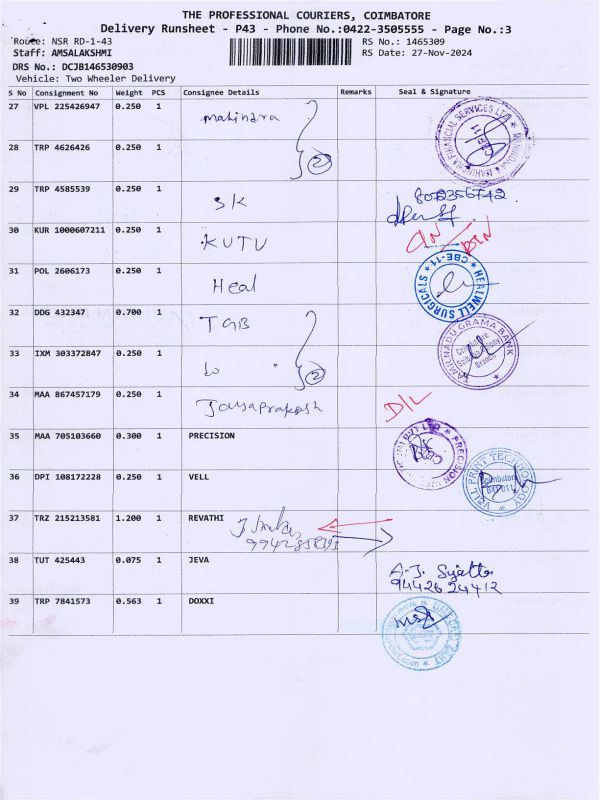 THE PROFESSIONAL COURIERS, COIMBATORE
Delivery Runsheet - P43 - Phone No.:0422-3505555 - Page No.:3
Route: NSR RD-1-43
RS No.: 1465309
Staff: AMSALAKSHMI
RS Date: 27-Nov-2024
DRS No.: DCJB146530903
Vehicle: Two Wheeler Delivery
S No Consignment No Weight PCS Consignee Details Remarks Seal & Signature
27 VPL 225426947 0.250 1 mahindra
28 TRP 4626426 0.250 1 2
29 TRP 4585539 0.250 1 SK
30 KUR 1000607211 0.250 1 KUTU
31 POL 2606173 0.250 1 Heal HEALWELL SURGICALS CBE-11
32 DDG 432347 0.700 1 TGB TAMILNADU GRAMA BANK
33 IXM 303372847 0.250 1 2
34 MAA 867457179 0.250 1 Jayaprakash D/L
35 MAA 705103660 0.300 1 PRECISION
36 DPI 108172228 0.250 1 VELL VELL PRINT TECHNOLOGY
37 TRZ 215213581 1.200 1 REVATHI
38 TUT 425443 0.075 1 JEVA
9442624412
39 TRP 7841573 0.563 1 DOXXI